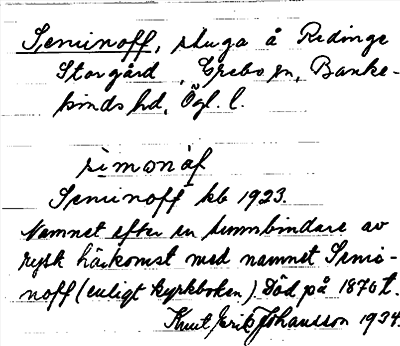 Semenoff, stuga å Redinge
Storgård, Grebo sn, Banke-
kinds hd, Ögl. l.
simonàf
Semenoff kb 1923.
Namnet efter en tunnbindare av
rysk härkomst med namnet Seme-
noff (enligt kyrkboken). Död på 1870 t.
Knut Erik Johansson 1934.